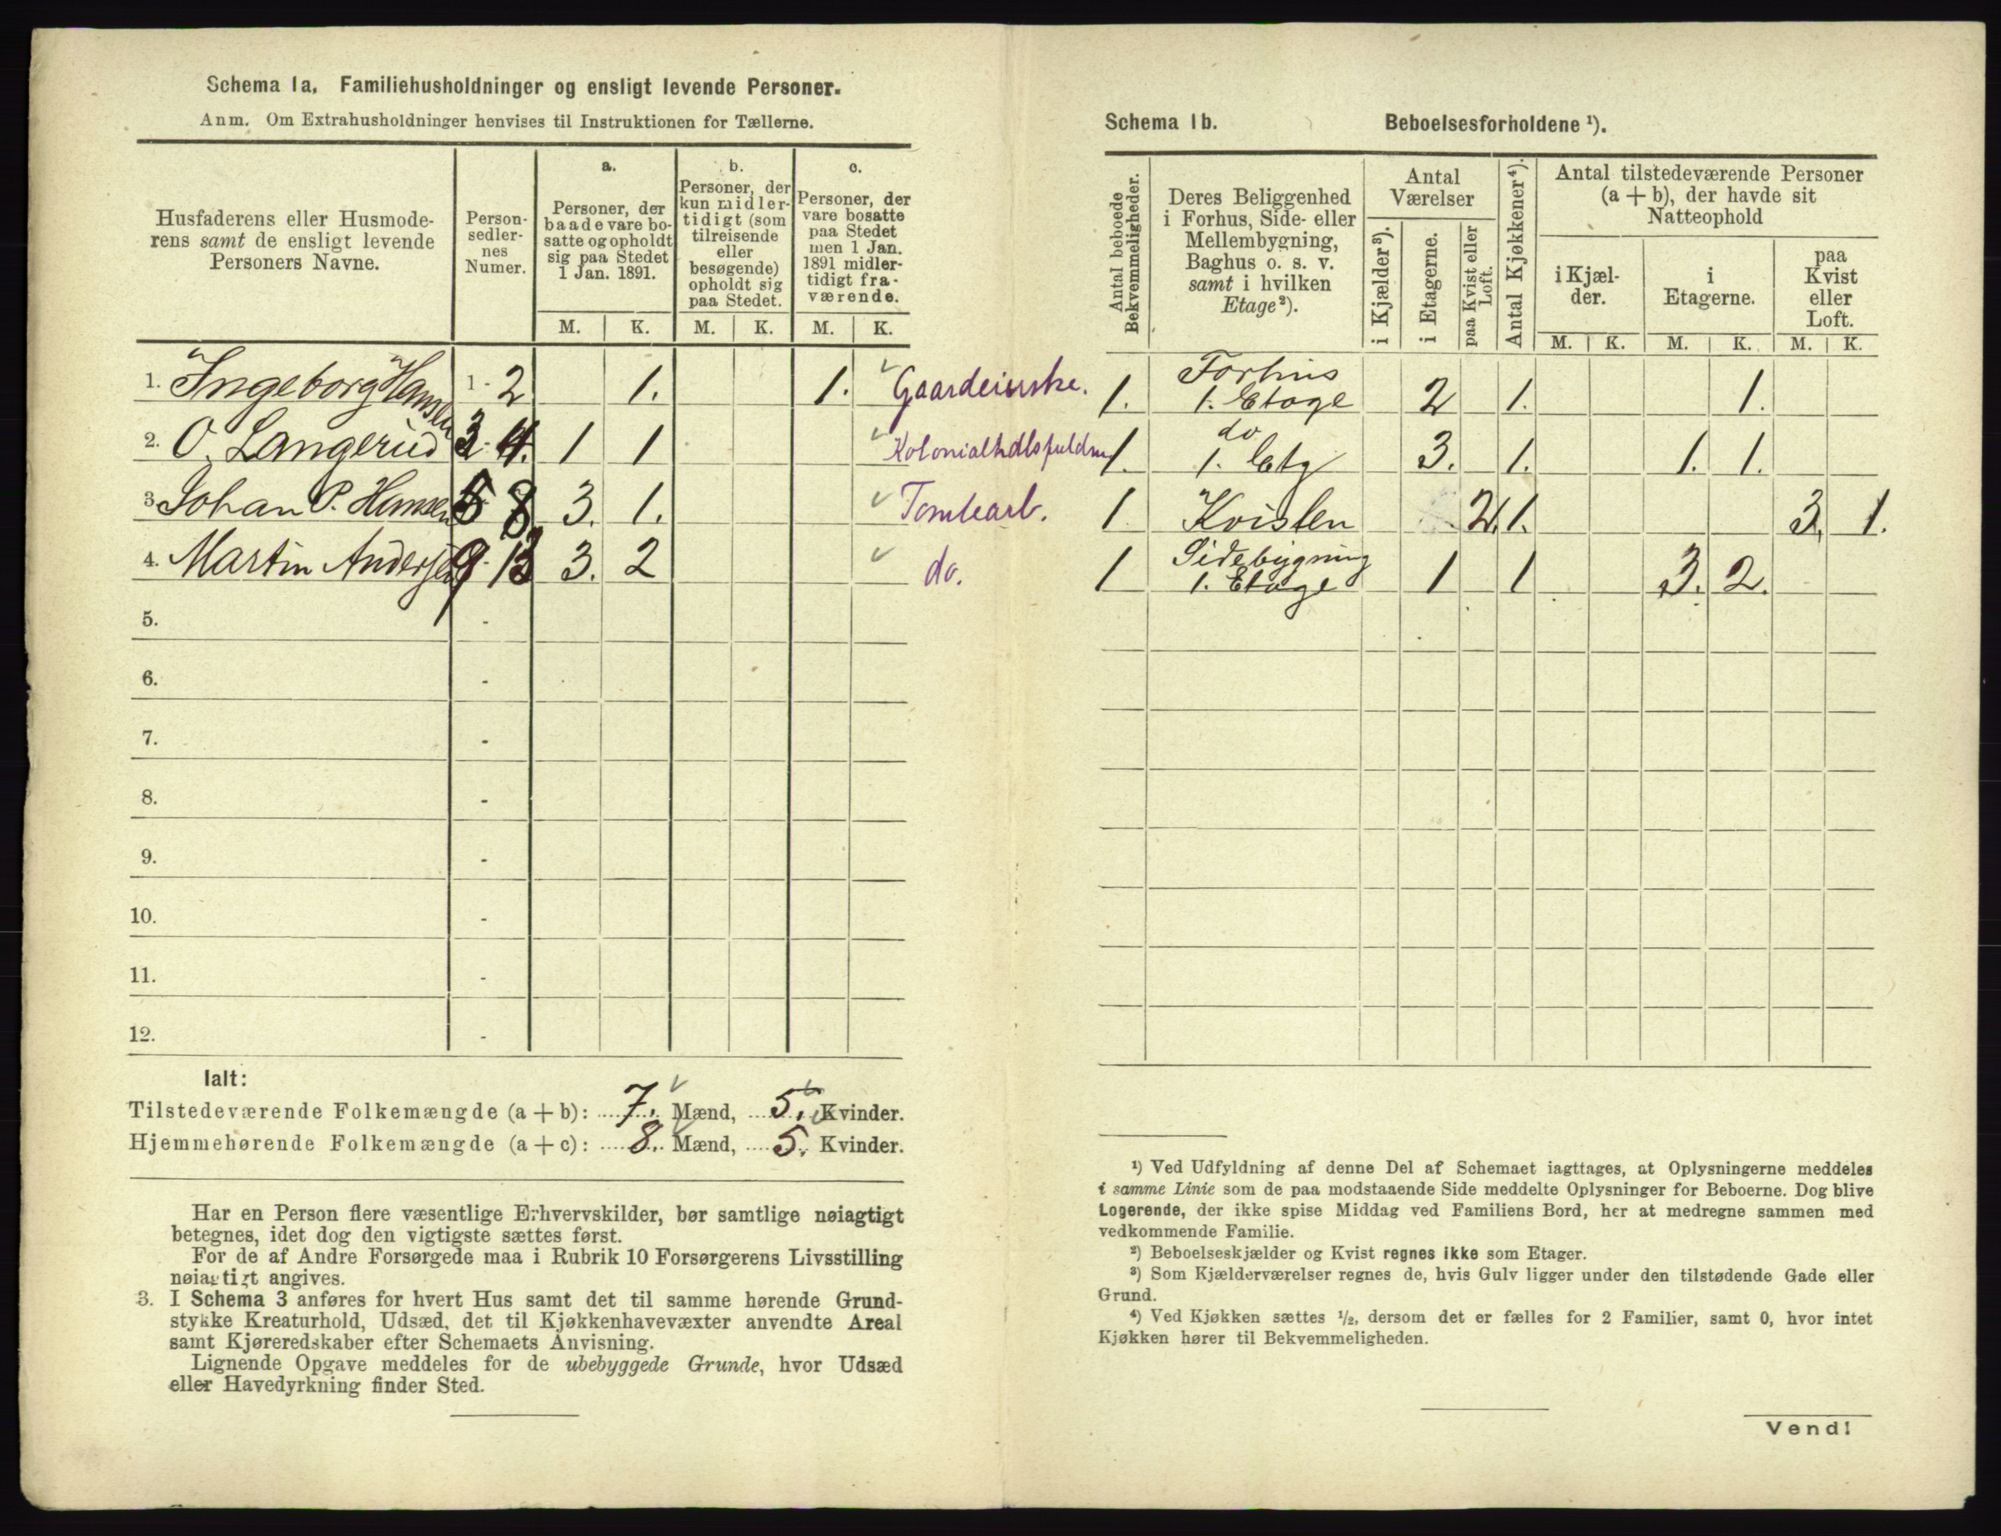 Schema 1a. Familiehusholdninger og ensligt levende Personer.
Anm. Om Extrahusholdninger henvises til Instruktionen for Tællerne.
Husfaderens eller Husmode-
rens samt de ensligt levende
Personers Navne.
Person-
sedler-
nes
Numer.
a.
Personer, der
baade vare bo-
satte og opholdt
sig paa Stedet
1 Jan. 1891.
b.
Personer, der
kun midler-
tidigt (som
tilreisende
eller
besøgende)
opholdt sig
paa Stedet.
c.
Personer, der
vare bosatte
paa Stedet
men 1 Jan.
1891 midler-
tidigt fra-
værende.
M. K. M. K. M. K.
1. Ingeborg Hansen 1 - 2 1. 1. Gaardeierske.
2. O. Langerud 3 - 4. 1 1 Kolonialhdlsfuldm
3. Johan P. Hansen 5 8. 3. 1. Tomtearb.
4. Martin Andersen 9 - 13 3. 2 do.
5. -
6. -
7. -
8. -
9. -
10. -
11. -
12. -
Ialt:
Tilstedeværende Folkemængde (a + b): 7. Mænd, 5. Kvinder.
Hjemmehørende Folkemængde (a + c): 8. Mænd, 5. Kvinder.
Har en Person flere væsentlige Erhvervskilder, bør samtlige nøiagtigt
betegnes, idet dog den vigtigste sættes først.
For de af Andre Forsørgede maa i Rubrik 10 Forsørgerens Livsstilling
nøiagtigt angives.
3. I Schema 3 anføres for hvert Hus samt det til samme hørende Grund-
stykke Kreaturhold, Udsæd, det til Kjøkkenhavevæxter anvendte Areal
samt Kjøreredskaber efter Schemaets Anvisning.
Lignende Opgave meddeles for de ubebyggede Grunde, hvor Udsæd
eller Havedyrkning finder Sted.
Schema 1b. Beboelsesforholdene ¹).
Antal beboede
Bekvemmeligheder.
Deres Beliggenhed
i Forhus, Side- eller
Mellembygning,
Baghus o. s. v.
samt i hvilken
Etage²).
Antal
Værelser
i Kjælder³).
i Etagerne.
paa Kvist eller
Loft.
Antal Kjøkkener⁴).
Antal tilstedeværende Personer
(a + b), der havde sit
Natteophold
i Kjæl-
der.
i
Etagerne.
paa
Kvist
eller
Loft.
M. K. M. K. M. K.
1. Forhus
1. Etage 2 1. 1.
1. do
1. Etg 3. 1. 1. 1.
1 Kvisten 2. 1. 3. 1.
1 Sidebygning
1. Etage 1 1 3. 2.
¹) Ved Udfyldning af denne Del af Schemaet iagttages, at Oplysningerne meddeles
i samme Linie som de paa modstaaende Side meddelte Oplysninger for Beboerne. Dog blive
Logerende, der ikke spise Middag ved Familiens Bord, her at medregne sammen med
vedkommende Familie.
²) Beboelseskjælder og Kvist regnes ikke som Etager.
³) Som Kjælderværelser regnes de, hvis Gulv ligger under den tilstødende Gade eller
Grund.
⁴) Ved Kjøkken sættes ½, dersom det er fælles for 2 Familier, samt 0, hvor intet
Kjøkken hører til Bekvemmeligheden.
Vend!